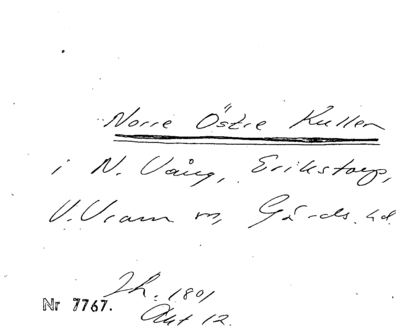 Norre Östre Kullen
i N. Vång, Erikstorp,
V. Vram m, Gärds hd.
Jh. 1801
Akt 12.
Nr 7767.